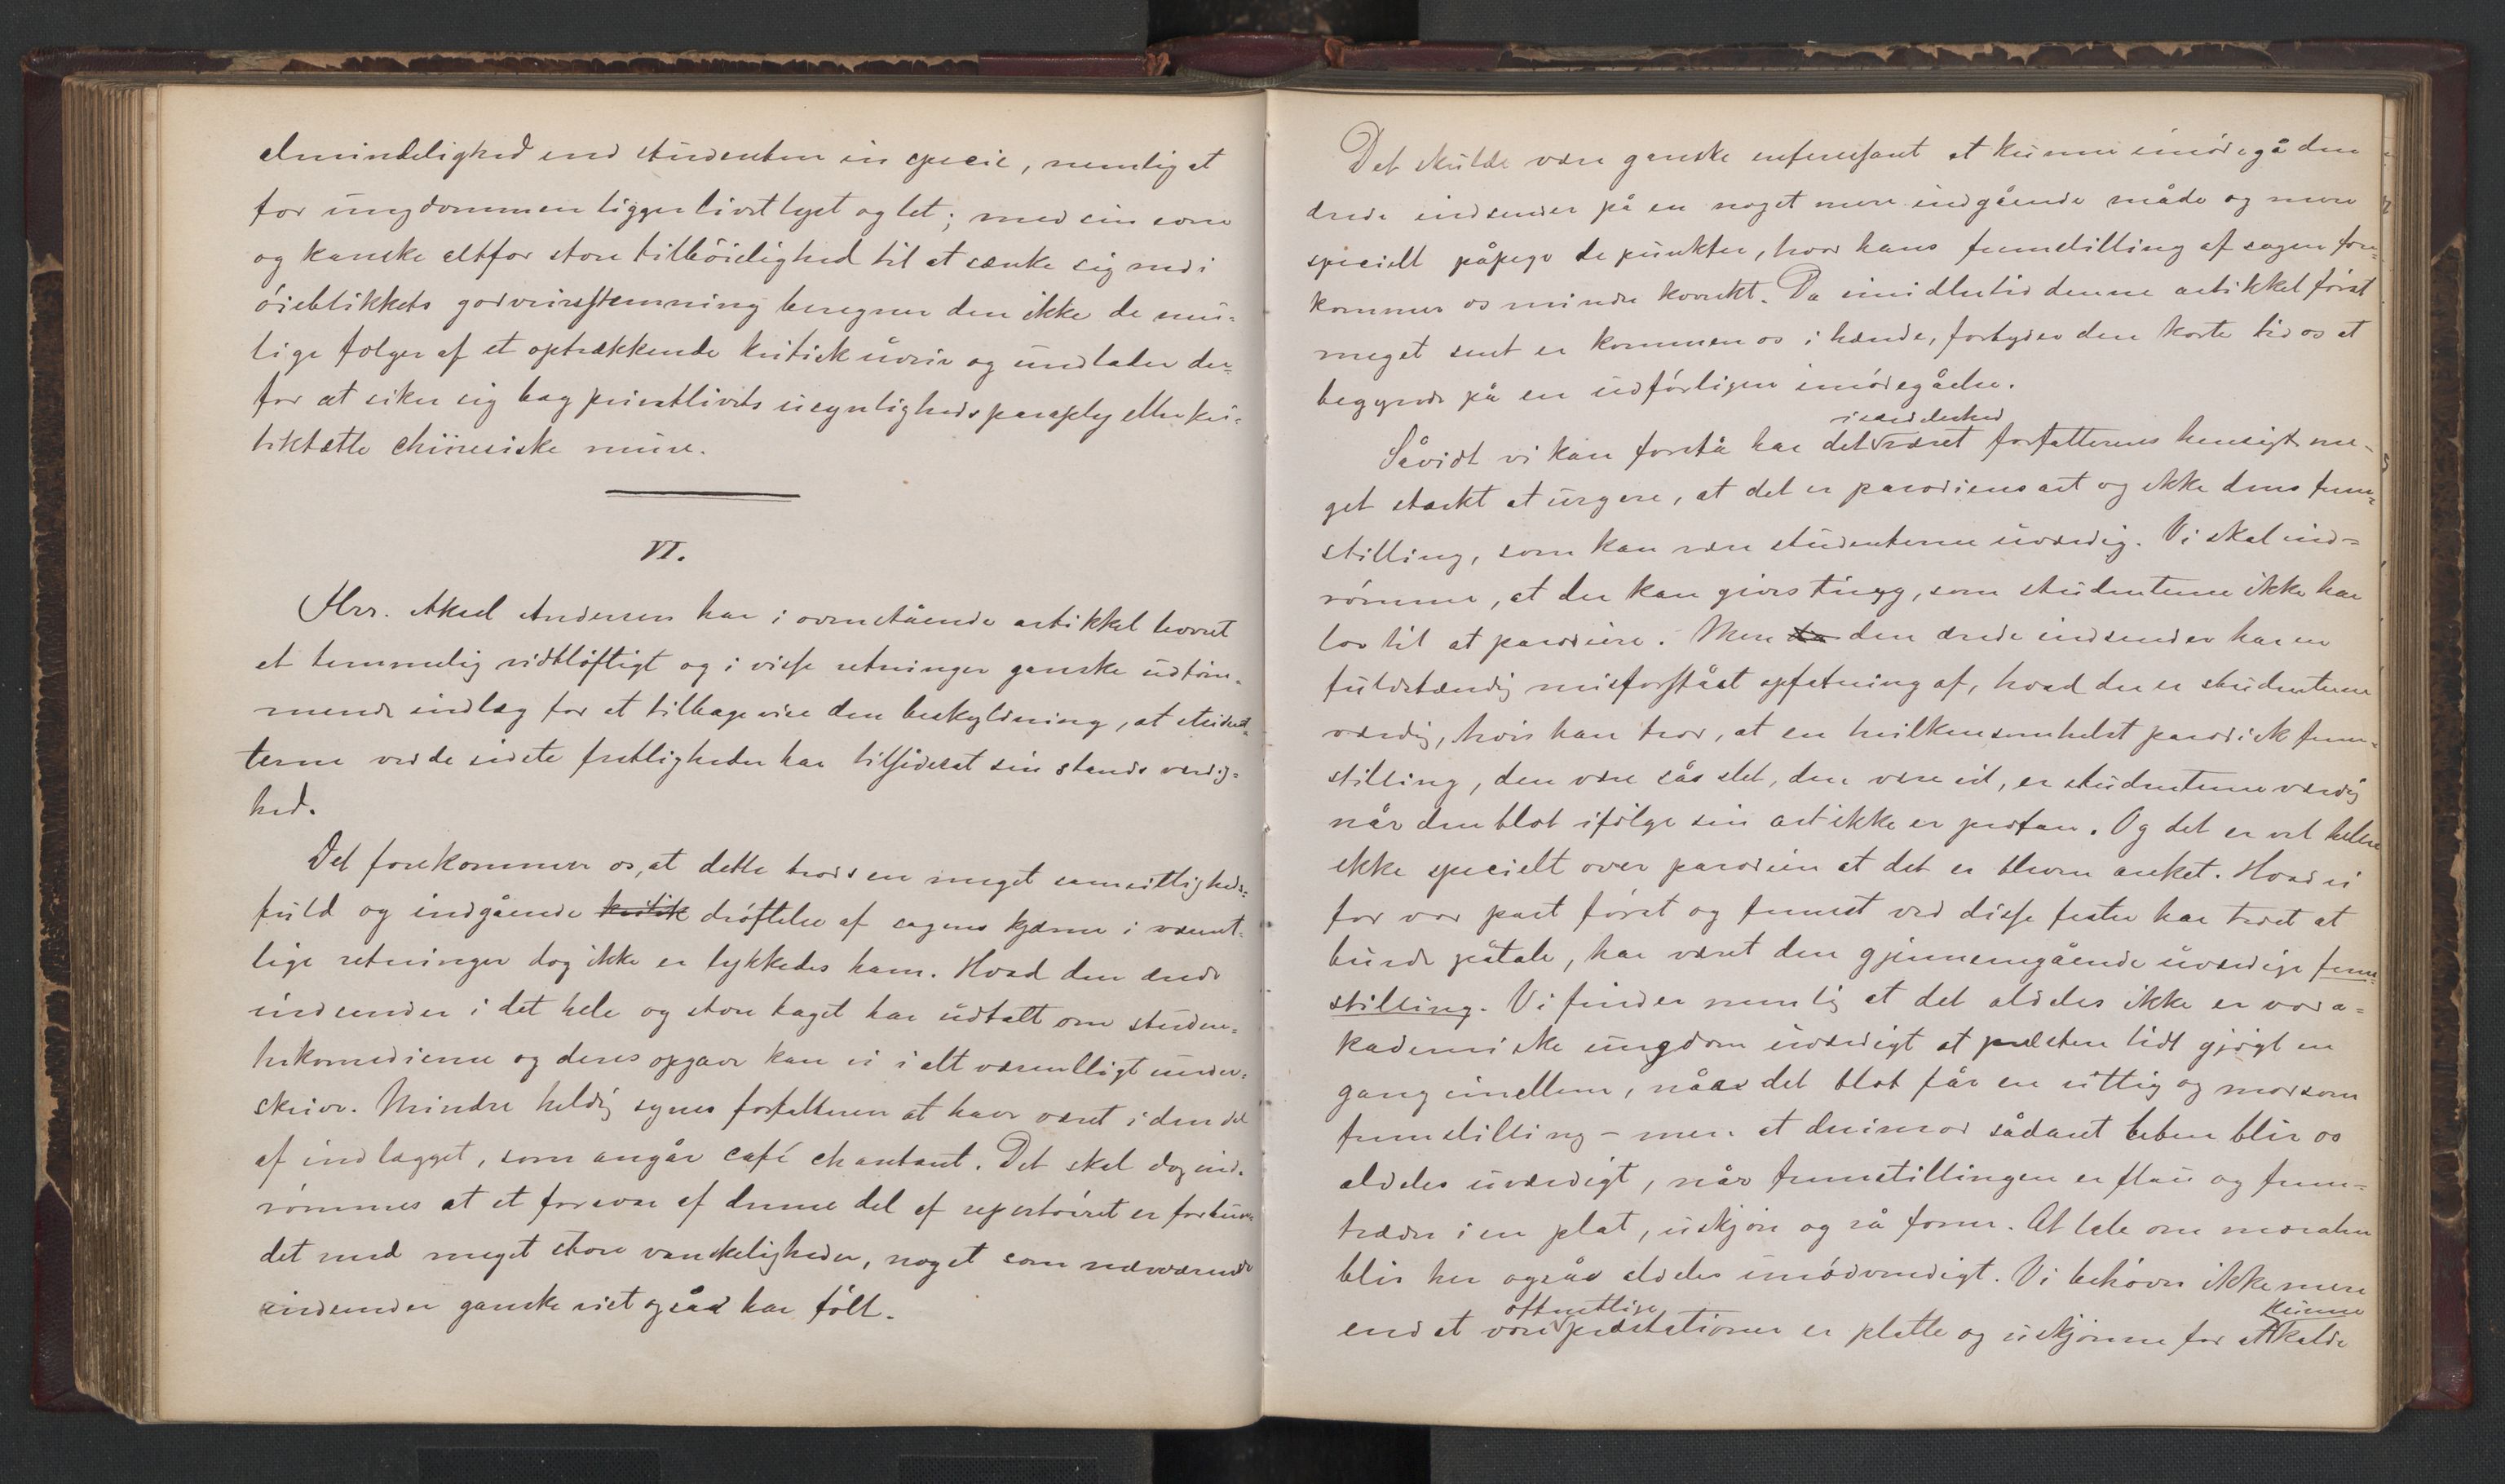 almindelighed end studenten in specie, nemlig at
for ungdommen ligger livet lyst og let; med sin som
og kanske altfor store tilbøielighed til at sænke sig ned i
øieblikkets godveirsstemning beregner den ikke de mu-
lige følger af et optrækkende kritisk uveir og undlader der-
for at sikre sig bag privatlivets usynlighedsparaply eller kri-
tiktætte chinesiske mure.
VI.
Hrr. Aksel Andersen har i ovenstående artikkel levert
et temmelig vidtløftigt og i visse retninger ganske udtøm-
mende indlæg for at tilbagevise den beskyldning, at studen-
terne ved de sidste festligheder har tilsidesat sin stands værdig-
hed.
Det forekommer os, at dette trods en meget samvittigheds-
fuld og indgående kritik drøftelse af sagens kjærne i væsent-
lige retninger dog ikke er lykkedes ham. Hvad den ærede
indsender i det hele og store taget har udtalt om studen-
terkomedierne og deres opgave kan vi i alt væsentligt under-
skrive. Mindre heldig synes forfatteren at have været i den del
af indlægget, som angår café chantant. Det skal dog ind-
rømmes at et forsvar af denne del af repertoiret er forbun-
det med meget store vanskeligheder, noget som nærværende
indsender ganske vist også har følt.
Det skulde være ganske interessant at kunne imødegå den
ærede indsender på en noget mere indgående måde og mere
specielt påpege de punkter, hvor hans fremstilling af sagen fore-
kommer os mindre korrekt. Da imidlertid denne artikkel først
meget sent er kommen os i hænde, forbyder den korte tid os at
begynde på en udførligere imødegåelse.
i særdeleshed
Såvidt vi kan forstå har det været forfatterens hensigt me-
get stærkt at urgere, at det er parodiens art og ikke dens frem-
stilling, som kan være studenterne uværdig. Vi skal ind-
rømme, at der kan gives tingg, som studenterne ikke har
lov til at parodiere. Men da den ærede indsender har en
fuldstændig misforstået opfatning af, hvad der er studenterne
værdig, hvis han tror, at en hvilkensomhelst parodisk frem-
stilling, den være såa slet, den være vil, er studenterne værdig
når den blot ifølge sin art ikke er profan. Og det er vel heller
ikke specielt over parodien at det er bleven anket. Hvad vi
for vor part først og fremst ved disse fester har troet at
burde påtale, har været den gjennemgående uværdige frem-
stilling. Vi finder nemlig at det aldeles ikke er vor a-
kademiske ungdom uværdigt at præstere lidt gjøgl en
gang imellem, nåar det blot får en vittig og morsom
fremstilling – men at derimod sådanet blir os
aldeles uværdigt, når fremstillingen er flau og frem-
træder i en plat, uskjøn og rå form. At tale om moralen
blir her også aldeles unødvendigt. Vi behøver ikke mere
offentlige kunne
end at vore præstationer er platte og uskjønne for at kalde